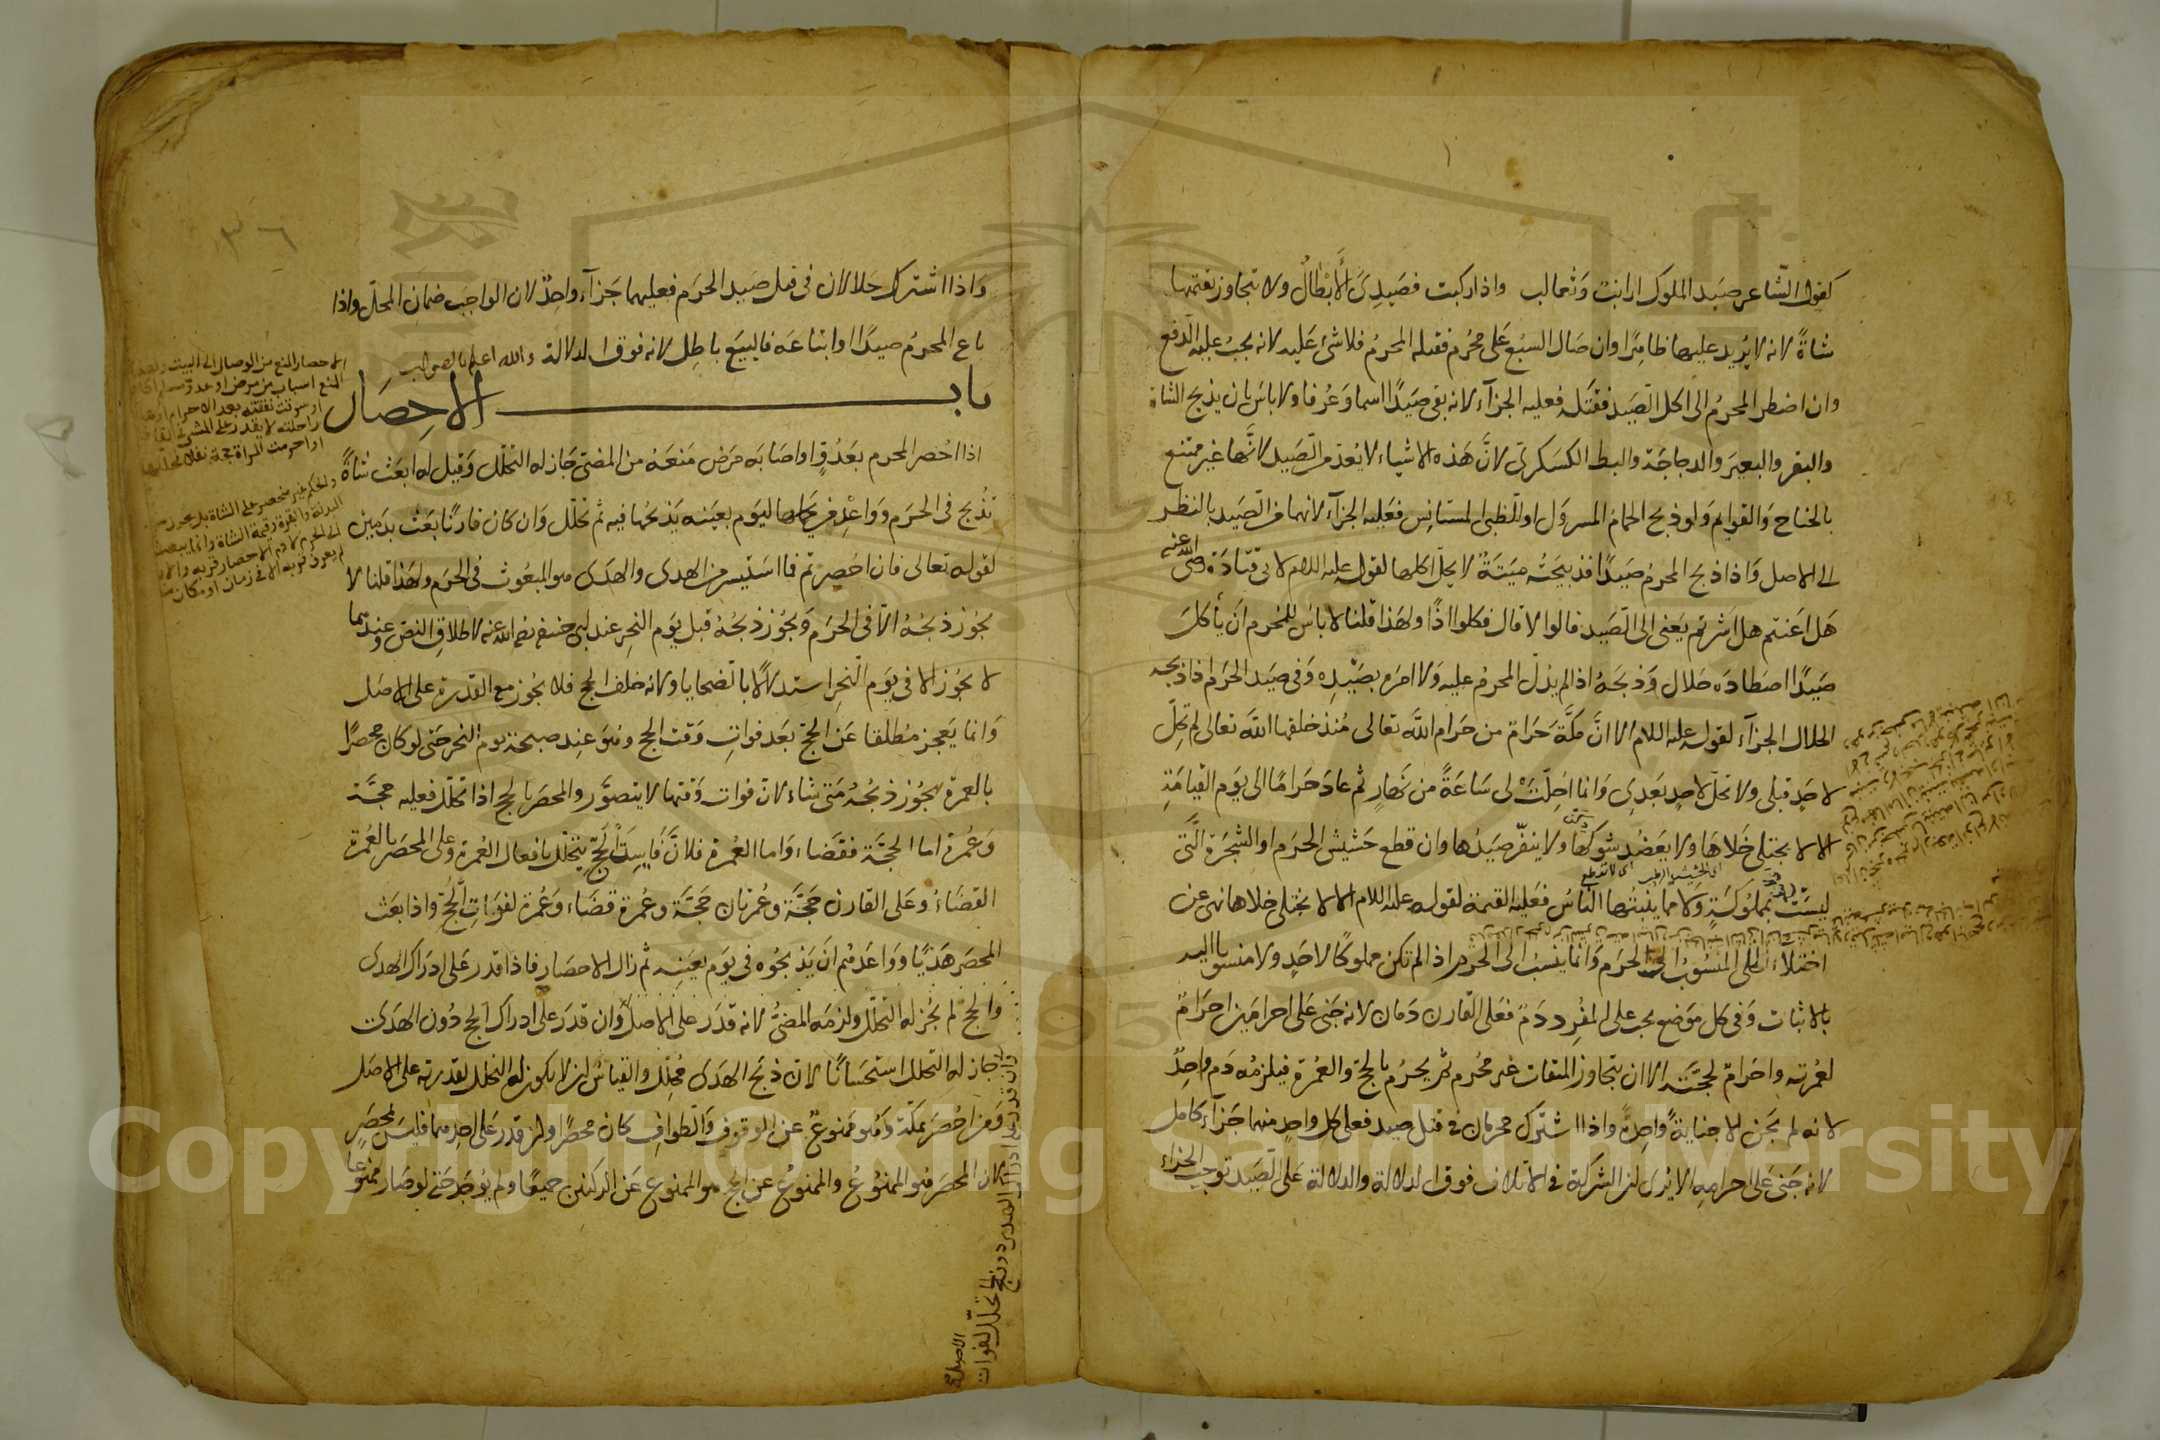 كقول الشاعر صيد الملوك ارانب وثعالب واذا ركبت فصيدي الابطال ولا تتجاوز بقيمتها
شاة لانه لا يزيد عليها ظاهرا وان صال السبع على محرم فقتله المحرم فلا شئ عليه لانه يجب عليه الدفع
وان اضطر المحرم الى اكل الصيد فقتله فعليه الجزآء لانه بقى صيدا اسما وعرفا ولا باس بان يذبح الشاة
والبقر والبعير والدجاجة والبط الكسكرى لان هذه الاشياء لا يعد من الصيد لانها غير ممتنع
بالجناح والقوايم ولو ذبح الحمام المسرول او الظبى المستانس فعليه الجزآء لانهما من الصيد بالنظر
الى الاصل واذا ذبح المحرم صيدا فذبيحته ميتة لا يحل اكلها لقوله عليه السلام لابى قتادة رضى الله عنه
هل اعنتم هل اشرتم يعنى الى الصيد قالوا لا قال فكلوا اذا ولهذا قلنا لا باس للمحرم ان يأكل
صيدا اصطاده حلال وذبحه اذا لم يدل المحرم عليه ولا امره بصيده وفى صيد الحرم اذا ذبحه
الحلال الجزآء لقوله عليه السلام الا ان مكة حرام من حرام الله تعالى منذ خلقها الله تعالى لم تحل
لاحد قبلى ولا تحل لاحد بعدى وانما احلت لى ساعة من نهار ثم عاد حراما الى يوم القيامة
الا لا يختلى خلاها ولا يعضد شوكها ولا ينفر صيدها وان قطع حشيش الحرم او الشجرة التى
ليست بمملوكة ولا مما ينبتها الناس فعليه القيمة لقوله عليه السلام الا لا يختلى خلاها نهى عن
اختلاء الخلى المنسوب الى الحرم وانما ينسب الى الحرم اذا لم تكن مملوكا لاحد ولا منسوبا اليه
بالاثبات وفى كل موضع يجب على المفرد دم فعلى القارن دمان لانه جنى على احرامين احرام
لعمرته واحرام لحجته الا ان يتجاوز الميقات غير محرم ثم يحرم بالحج والعمرة فيلزمه دم واحد
لانه لم يجن الا جناية واحدة واذا اشترك محرمان فى قتل صيد فعلى كل واحد منهما جزآء كامل
لانه جنى على احرامه الا يرى ان الشركة فى الاتلاف فوق الدلالة والدلالة على الصيد توجب الجزاء
٣٦
واذا اشترك حلالان فى قتل صيد الحرم فعليهما جزآء واحد لان الواجب ضمان المحل واذا
باع المحرم صيدا او ابتاعه فالبيع باطل لانه فوق الدلالة والله اعلم بالصواب
باب الاحصار
اذا احصر المحرم بعدو او اصابه مرض منعه من المضى جاز له التحلل وقيل له ابعث شاة
تذبح فى الحرم وواعد من يحملها ليوم بعينه يذبحها فيه ثم تحلل وان كان قارنا بعث بدمين
لقوله تعالى فان احصرتم فما استيسر من الهدى والهدى هو المبعوث فى الحرم ولهذا قلنا لا
يجوز ذبحه الا فى الحرم ويجوز ذبحه قبل يوم النحر عند ابى حنيفة رضى الله عنه لاطلاق النص وعندهما
لا يجوز الا فى يوم النحر استدلالا بالضحايا ولانه خلف الحج فلا يجوز مع القدرة على الاصل
وانما يعجز مطلقا عن الحج بعد فوات وقت الحج وهو عند صبحة يوم النحر حتى لو كان محصرا
بالعمرة يجوز ذبحه متى شاء لان فوات وقتها لا يتصور والمحصر بالحج اذا تحلل فعليه حجة
وعمرة اما الحجة فقضاء واما العمرة فلان فايت الحج يتحلل بافعال العمرة وعلى المحصر بالعمرة
القضاء وعلى القارن حجة وعمرتان حجة وعمرة قضاء وعمرة لفوات الحج واذا بعث
المحصر هديا وواعدهم ان يذبحوه فى يوم بعينه ثم زال الاحصار فاذا قدر على ادراك الهدى
والحج لم يجز له التحلل ولزمه المضى لانه قدر على الاصل وان قدر على ادراك الحج دون الهدى
جاز له التحلل استحسانا لان ذبح الهدى محلل والقياس ان لا يكون له التحلل لقدرته على الاصل
ومن احصر بمكة وهو ممنوع عن الوقوف والطواف كان محصرا وان قدر على احدهما فليس بمحصر
لان المحصر هو الممنوع والممنوع عن الحج هو الممنوع عن الركنين جميعا ولم يوجد حتى لو صار ممنوعا
الاحصار المنع من الوصال الى البيت
وان قدر على ادراك الهدى دون الحج تحلل لفوات
الاصل
Copyright © King Saud University